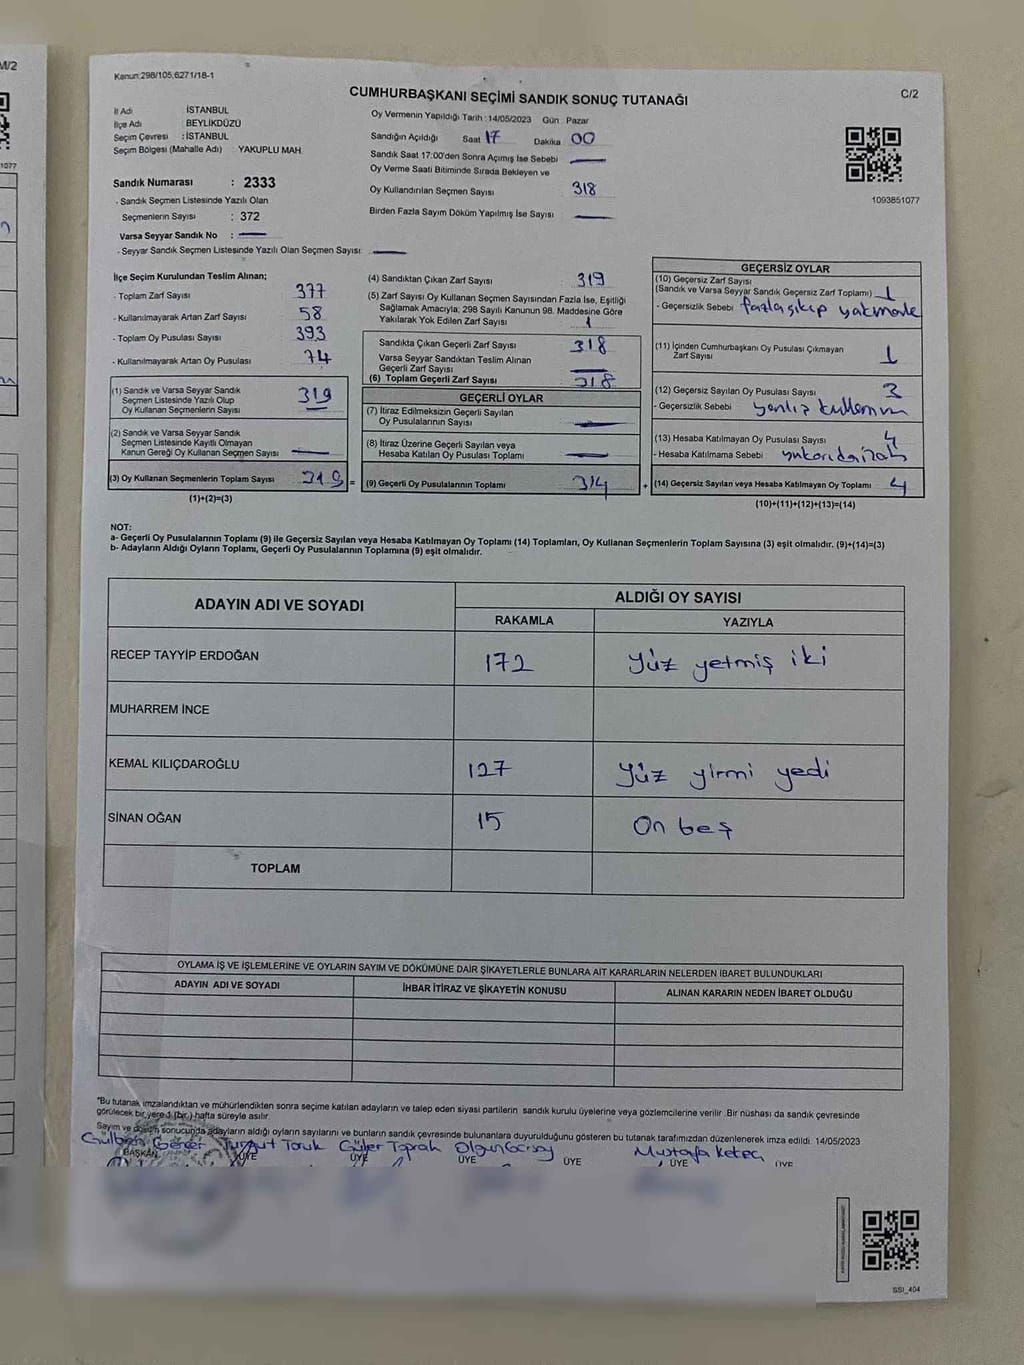 M/2
1077
Kanun:298/105,6271/18-1
CUMHURBAŞKANI SEÇİMİ SANDIK SONUÇ TUTANAĞI
C/2
İl Adı İSTANBUL
İlçe Adı : BEYLİKDÜZÜ
Seçim Çevresi : İSTANBUL
Seçim Bölgesi (Mahalle Adı) YAKUPLU MAH.
Sandık Numarası : 2333
- Sandık Seçmen Listesinde Yazılı Olan
Seçmenlerin Sayısı : 372
Varsa Seyyar Sandık No :
- Seyyar Sandık Seçmen Listesinde Yazılı Olan Seçmen Sayısı:
Oy Vermenin Yapıldığı Tarih : 14/05/2023 Gün : Pazar
Sandığın Açıldığı Saat 17 Dakika 00
Sandık Saat 17:00'den Sonra Açılmış İse Sebebi
Oy Verme Saati Bitiminde Sırada Bekleyen ve
Oy Kullandırılan Seçmen Sayısı 318
Birden Fazla Sayım Döküm Yapılmış İse Sayısı
1093851077
İlçe Seçim Kurulundan Teslim Alınan;
- Toplam Zarf Sayısı 377
- Kullanılmayarak Artan Zarf Sayısı 58
- Toplam Oy Pusulası Sayısı 393
- Kullanılmayarak Artan Oy Pusulası 74
(1) Sandık ve Varsa Seyyar Sandık
Seçmen Listesinde Yazılı Olup
Oy Kullanan Seçmenlerin Sayısı 319
(2) Sandık ve Varsa Seyyar Sandık
Seçmen Listesinde Kayıtlı Olmayan
Kanun Gereği Oy Kullanan Seçmen Sayısı
(3) Oy Kullanan Seçmenlerin Toplam Sayısı 319 =
(1)+(2)=(3)
(4) Sandıktan Çıkan Zarf Sayısı 319
(5) Zarf Sayısı Oy Kullanan Seçmen Sayısından Fazla İse, Eşitliği
Sağlamak Amacıyla, 298 Sayılı Kanunun 98. Maddesine Göre
Yakılarak Yok Edilen Zarf Sayısı 1
Sandıkta Çıkan Geçerli Zarf Sayısı 318
Varsa Seyyar Sandıktan Teslim Alınan
Geçerli Zarf Sayısı
(6) Toplam Geçerli Zarf Sayısı 318
GEÇERLİ OYLAR
(7) İtiraz Edilmeksizin Geçerli Sayılan
Oy Pusulalarının Sayısı
(8) İtiraz Üzerine Geçerli Sayılan veya
Hesaba Katılan Oy Pusulası Toplamı
(9) Geçerli Oy Pusulalarının Toplamı 314 +
GEÇERSİZ OYLAR
(10) Geçersiz Zarf Sayısı
(Sandık ve Varsa Seyyar Sandık Geçersiz Zarf Toplamı) 1
- Geçersizlik Sebebi fazla çıkıp yakmakle
(11) İçinden Cumhurbaşkanı Oy Pusulası Çıkmayan
Zarf Sayısı 1
(12) Geçersiz Sayılan Oy Pusulası Sayısı 3
- Geçersizlik Sebebi
(13) Hesaba Katılmayan Oy Pusulası Sayısı 4
- Hesaba Katılmama Sebebi
(14) Geçersiz Sayılan veya Hesaba Katılmayan Oy Toplamı 4
(10)+(11)+(12)+(13)=(14)
NOT:
a- Geçerli Oy Pusulalarının Toplamı (9) ile Geçersiz Sayılan veya Hesaba Katılmayan Oy Toplamı (14) Toplamları, Oy Kullanan Seçmenlerin Toplam Sayısına (3) eşit olmalıdır. (9)+(14)=(3)
b- Adayların Aldığı Oyların Toplamı, Geçerli Oy Pusulalarının Toplamına (9) eşit olmalıdır.
ADAYIN ADI VE SOYADI ALDIĞI OY SAYISI
RAKAMLA YAZIYLA
RECEP TAYYİP ERDOĞAN 172 Yüz yetmiş iki
MUHARREM İNCE
KEMAL KILIÇDAROĞLU 127 Yüz yirmi yedi
SİNAN OĞAN 15 On beş
TOPLAM
OYLAMA İŞ VE İŞLEMLERİNE VE OYLARIN SAYIM VE DÖKÜMÜNE DAİR ŞİKAYETLERLE BUNLARA AİT KARARLARIN NELERDEN İBARET BULUNDUKLARI
ADAYIN ADI VE SOYADI İHBAR İTİRAZ VE ŞİKAYETİN KONUSU ALINAN KARARIN NEDEN İBARET OLDUĞU
"Bu tutanak imzalandıktan ve mühürlendikten sonra seçime katılan adayların ve talep eden siyasi partilerin sandık kurulu üyelerine veya gözlemcilerine verilir .Bir nüshası da sandık çevresinde
görülecek bir yere 1 (bir ) hafta süreyle asılır.
Sayım ve döküm sonucunda adayların aldığı oyların sayılarını ve bunların sandık çevresinde bulunanlara duyurulduğunu gösteren bu tutanak tarafımızdan düzenlenerek imza edildi. 14/05/2023
Turgut Toruk Güler Toprak Mustafa Keteci
BAŞKAN ÜYE ÜYE ÜYE ÜYE ÜYE ÜYE
SSI_404